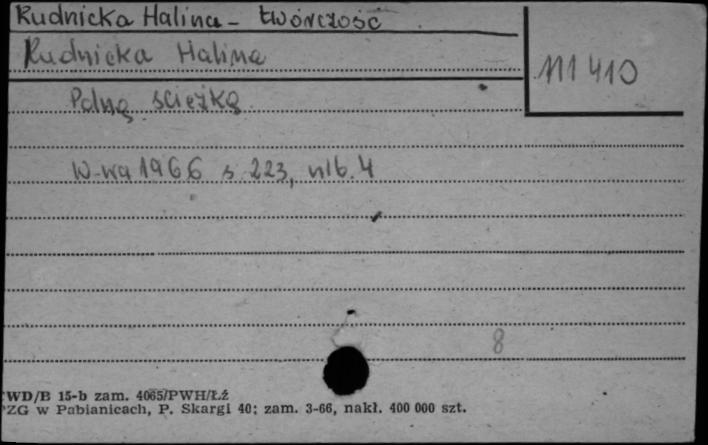 Rudnicka Halina - twórczość
Rudnicka Halina
111410
Polną ścieżką
W-wa 1966 s. 223, nlb. 4
8
WD/B 15-b zam. 4065/PWH/Łź
PZG w Pabianicach, P. Skargi 40; zam. 3-66, nakł. 400 000 szt.